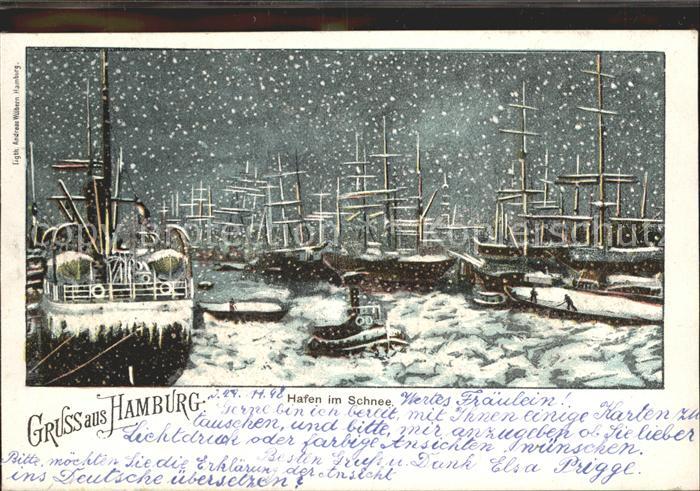 Ligth. Andreas Wülbern Hamburg.
GRUSS aus HAMBURG.
Hafen im Schnee.
Wertes Fräulein!
Gerne bin ich bereit, mit Ihnen einige Karten zu
tauschen, und bitte, mir anzugeben ob Sie lieber
Lichtdruck oder farbige Ansichten wünschen.
Besten Gruß u. Dank Elsa Prigge.
Bitte, möchten Sie die Erklärung der Ansicht
ins Deutsche übersetzen!